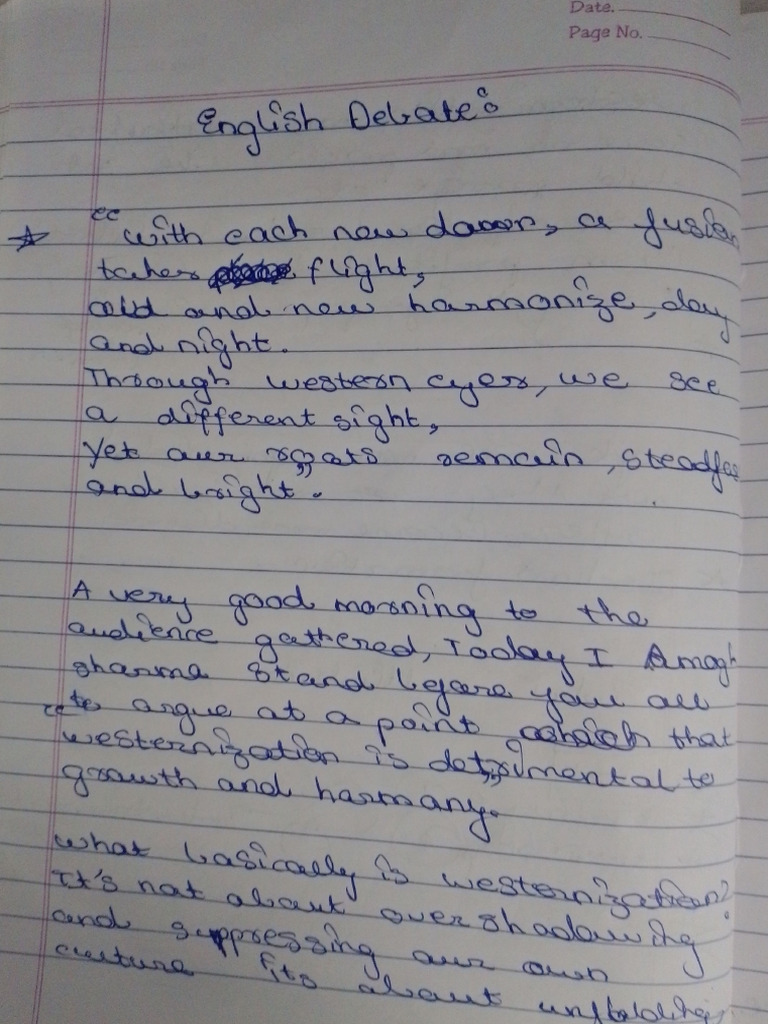 Date.
Page No.
English Debate:
"With each new dawn, a fusion
takes flight,
old and new harmonize, day
and night.
Through western eyes, we see
a different sight,
Yet our roots remain, steadfas
and bright".
A very good morning to the
audience gathered, Today I Amogh
sharma stand before you all
to argue at a point that
"westernization is detrimental to
growth and harmony."
What basically is westernization?
It's not about overshadowing
and suppressing our own
culture its about unfolding